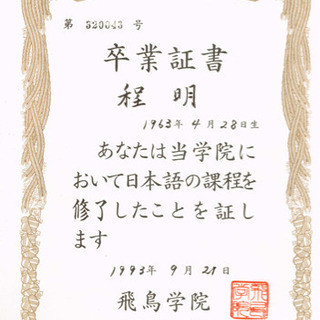 第 320043 号
卒業証書
程 明
1963年 4月28日生
あなたは当学院に
おいて日本語の課程を
修了したことを証し
ます
1993年 9月21日
飛鳥学院